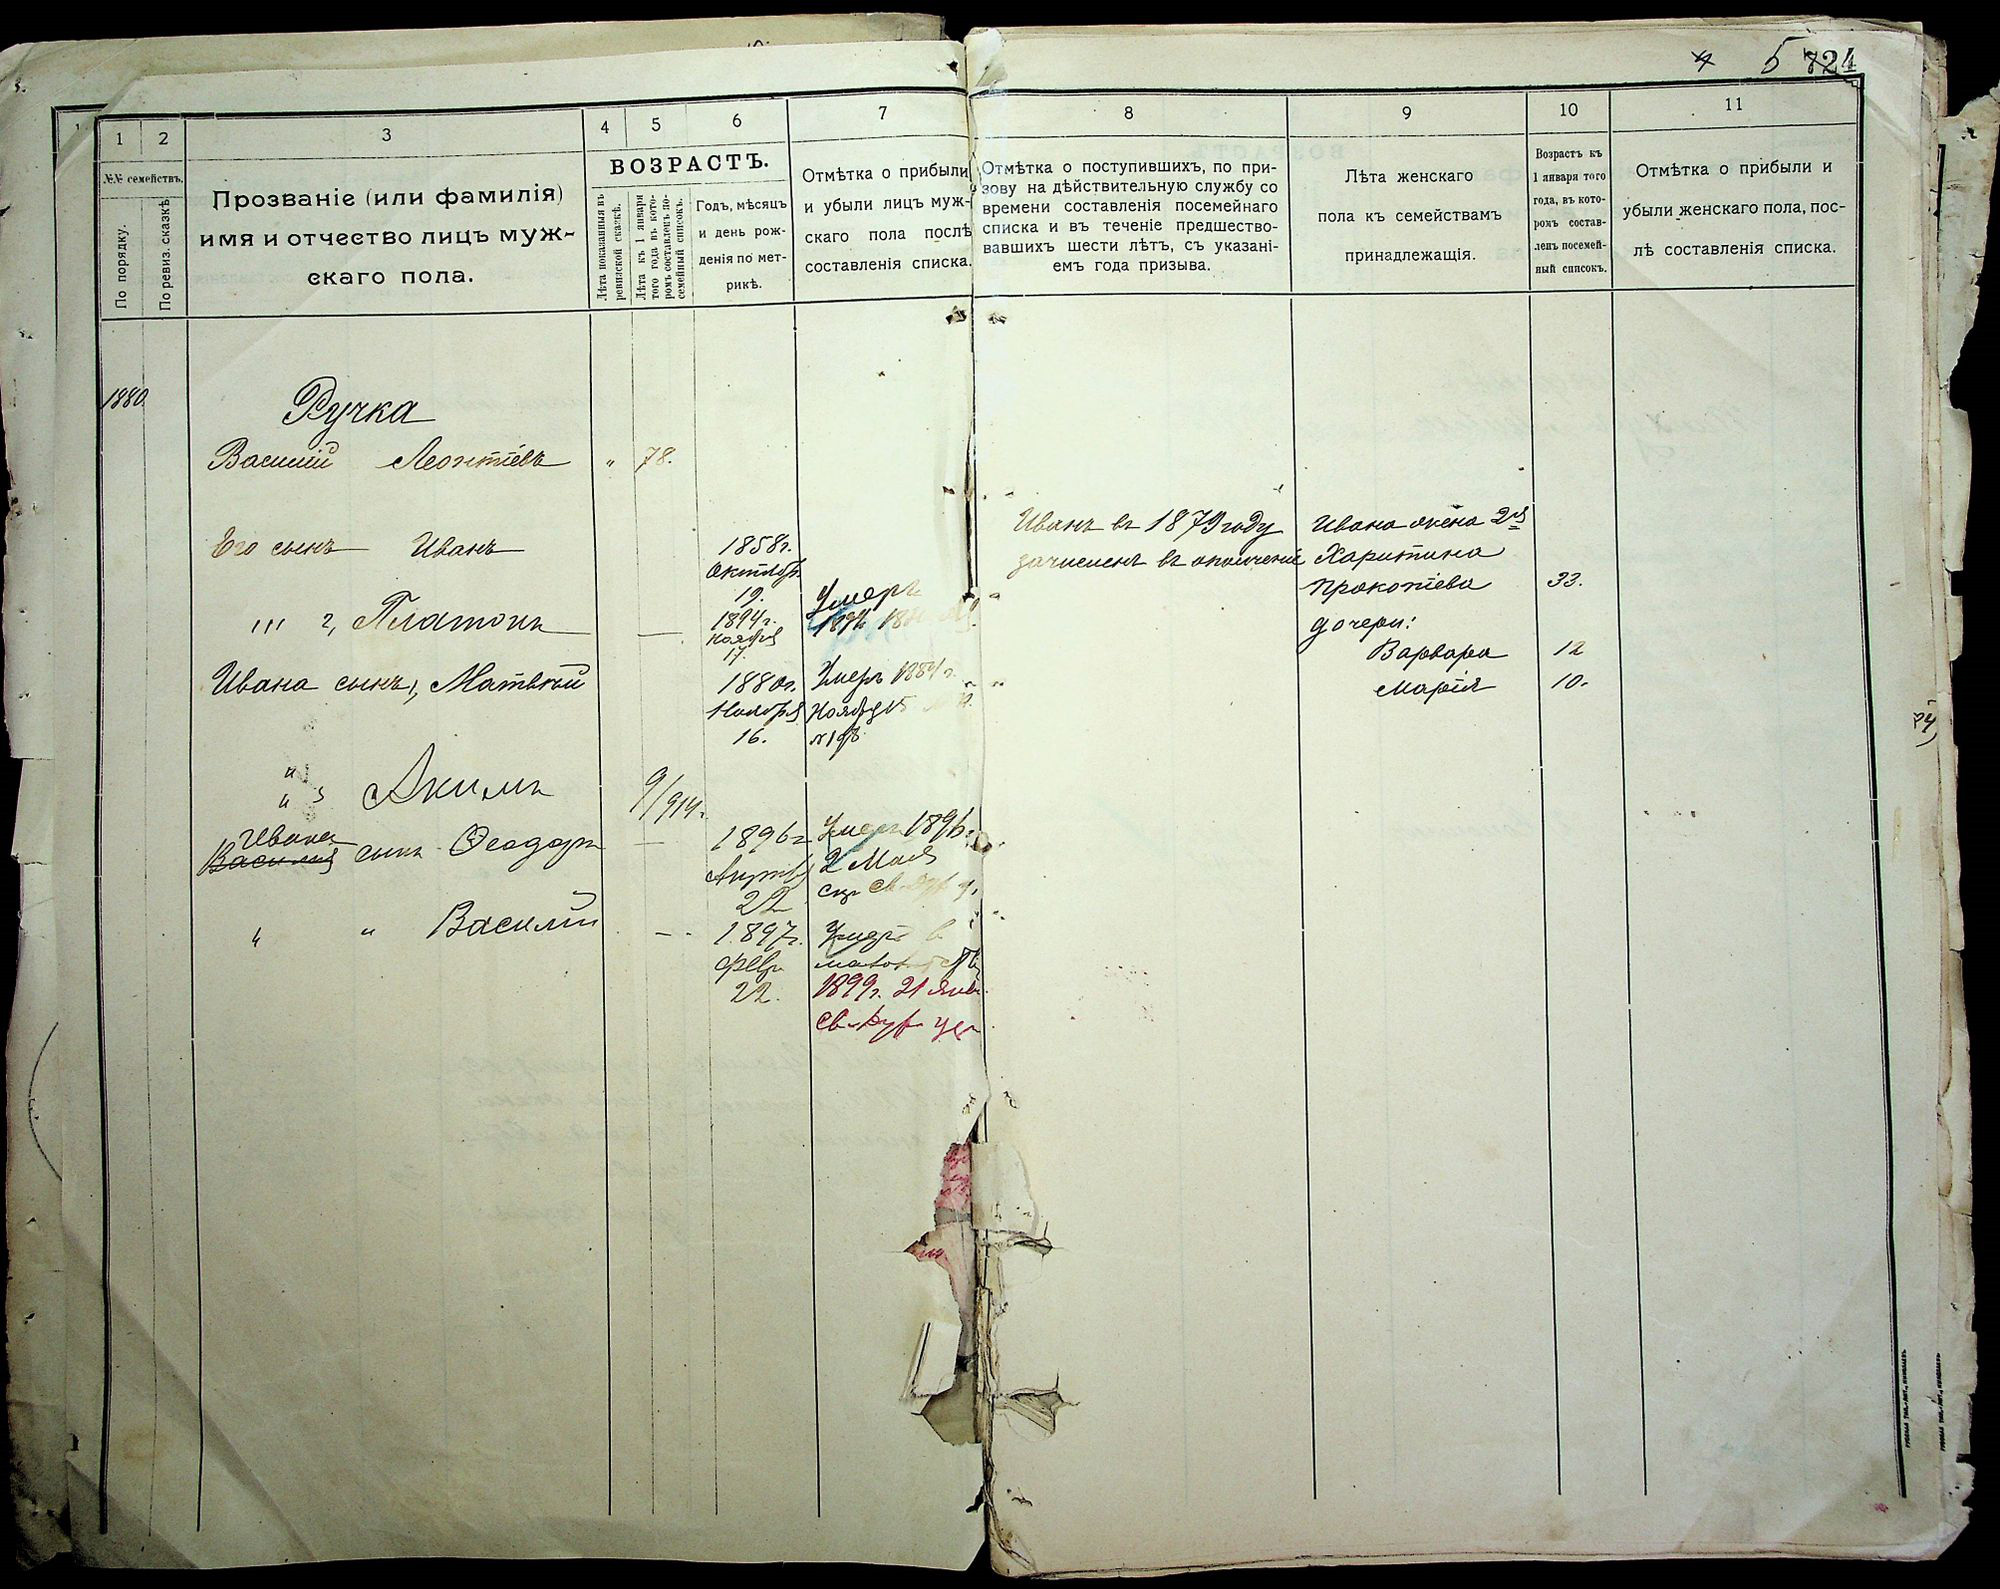 4 5 724
1 2 3 4 5 6 7 8 9 10 11
№№ семействъ.
По порядку.
По ревиз. сказкѣ.
Прозваніе (или фамилія)
имя и отчество лицъ муж-
скаго пола.
ВОЗРАСТЪ.
Лѣта показанныя въ
ревизской сказкѣ.
Лѣта къ 1 января
того года въ кото-
ромъ составленъ по-
семейный списокъ.
Годъ, мѣсяцъ
и день рож-
денія по мет-
рикѣ.
Отмѣтка о прибыли
и убыли лицъ муж-
скаго пола послѣ
составленія списка.
Отмѣтка о поступившихъ, по при-
зову на дѣйствительную службу со
времени составленія посемейнаго
списка и въ теченіе предшество-
вавшихъ шести лѣтъ, съ указані-
емъ года призыва.
Лѣта женскаго
пола къ семействамъ
принадлежащія.
Возрастъ къ
1 января того
года, въ кото-
ромъ состав-
ленъ посемей-
ный списокъ.
Отмѣтка о прибыли и
убыли женскаго пола, пос-
лѣ составленія списка.
1880
Ручка
Василій Леонтіевъ " 78.
Его сынъ Иванъ
1858г.
Октября
19.
Иванъ въ 1879 году
зачисленъ въ ополченіе
Ивана жена 2я
Харитина
Прокопіева 33.
дочери:
Варвара 12
Марія 10.
2, Платонъ —
1894г.
Ноября
17.
Умеръ
Ивана сынъ 1, Матвѣй
1880г.
Ноября
16.
Умеръ 1884г.
Ноября 15
" "
" 3 Акимъ 9/914.
Ивана
Василія сынъ Ѳеодоръ —
1896г
Апрѣля
22
Умеръ 1896г.
2 Мая
" " Василій —
1897г.
Февр.
22.
Умеръ в
1899г. 21 Янв.